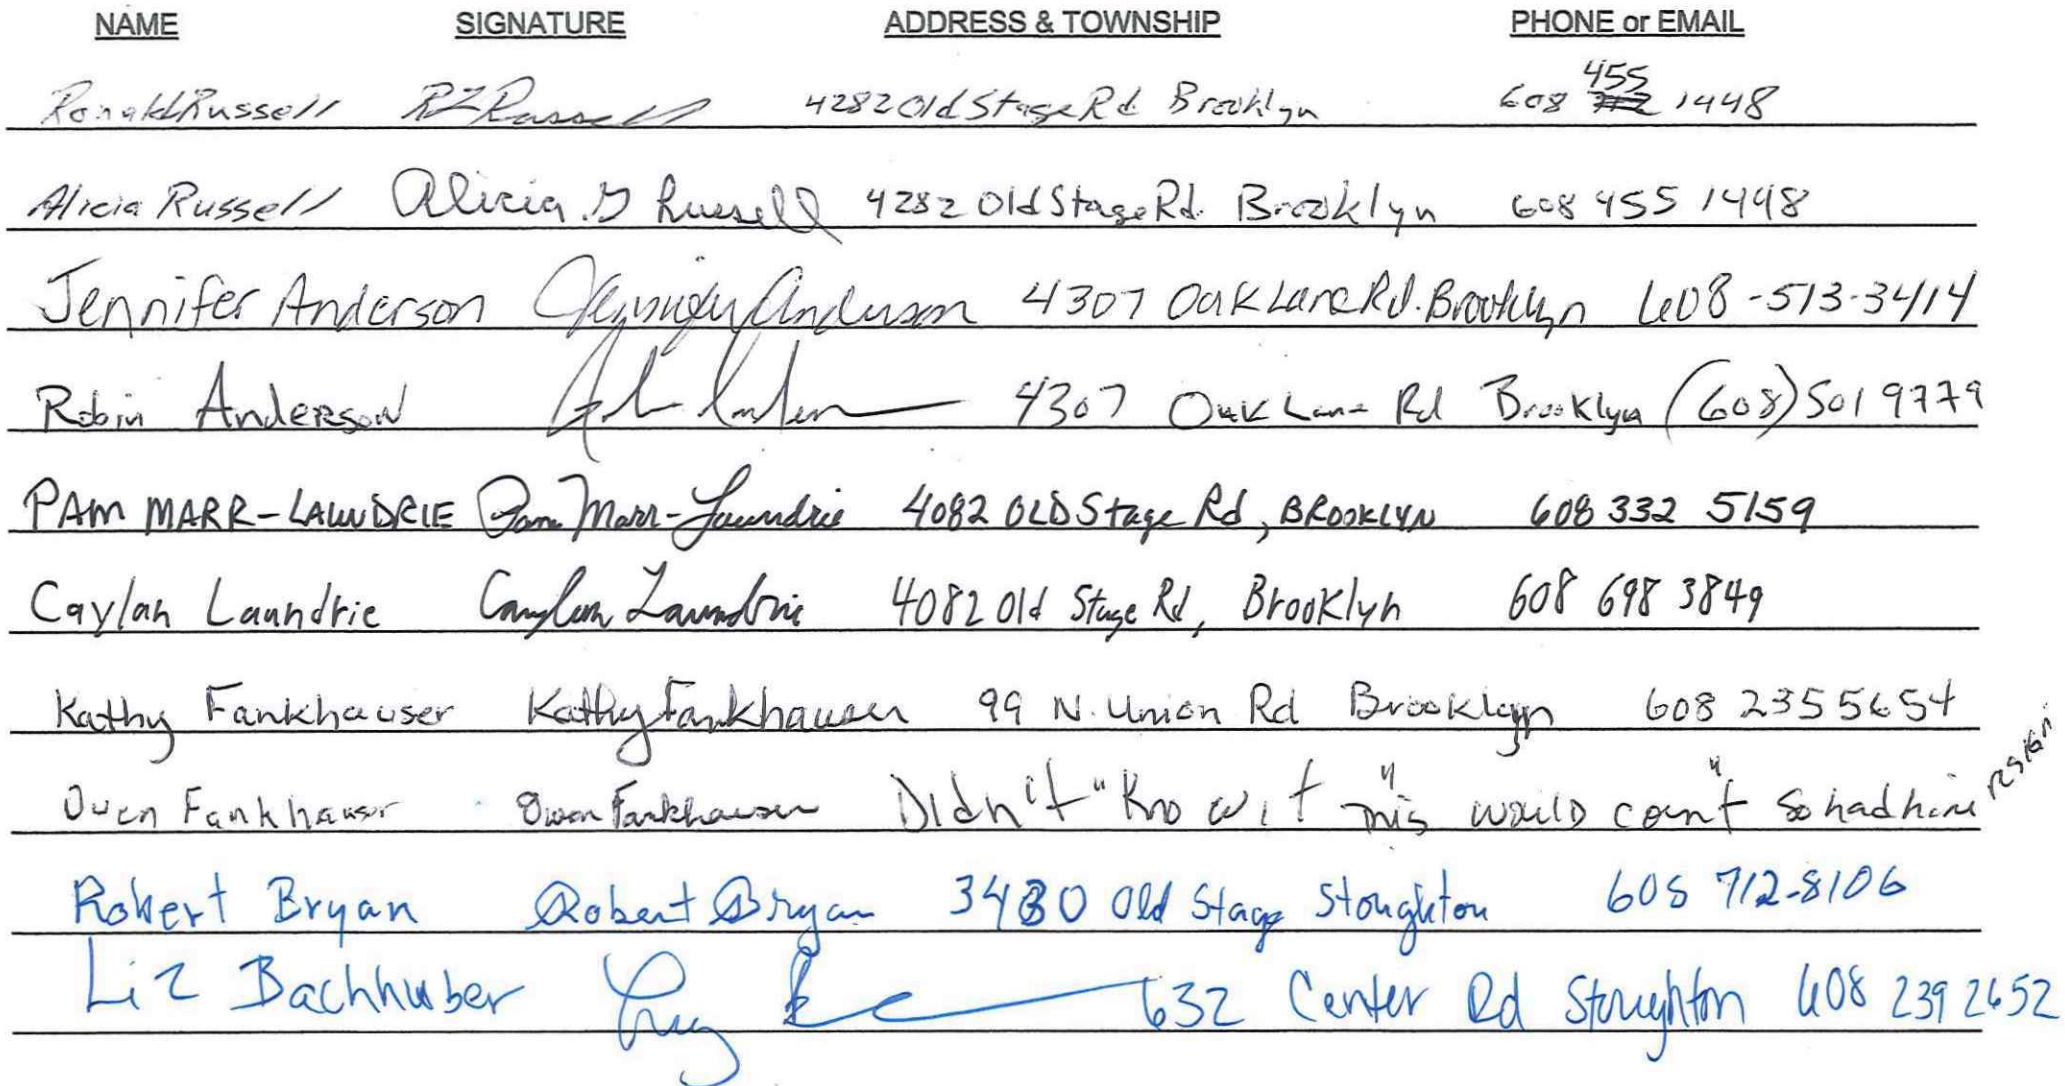 NAME SIGNATURE ADDRESS & TOWNSHIP PHONE or EMAIL
Ronald Russell RZ Russell 4282 Old Stage Rd Brooklyn 608 455 1448
Alicia Russell Alicia G Russell 4282 Old Stage Rd. Brooklyn 608 455 1448
Jennifer Anderson Jennifer Anderson 4307 Oak Lane Rd. Brooklyn 608-513-3414
Robin Anderson 4307 Oak Lane Rd Brooklyn (608) 501 9779
PAM MARR-LAUNDRIE Pam Marr-Laundrie 4082 OLD Stage Rd, BROOKLYN 608 332 5159
Caylan Laundrie Caylan Laundrie 4082 Old Stage Rd, Brooklyn 608 698 3849
Kathy Fankhauser Kathy Fankhauser 99 N. Union Rd Brooklyn 608 235 5654
Owen Fankhauser Owen Fankhauser Didn't "Know if "this would count" so had him resign
Robert Bryan Robert Bryan 3430 Old Stage Stoughton 608 712-8106
Liz Bachhuber 632 Center Rd Stoughton 608 239 2652